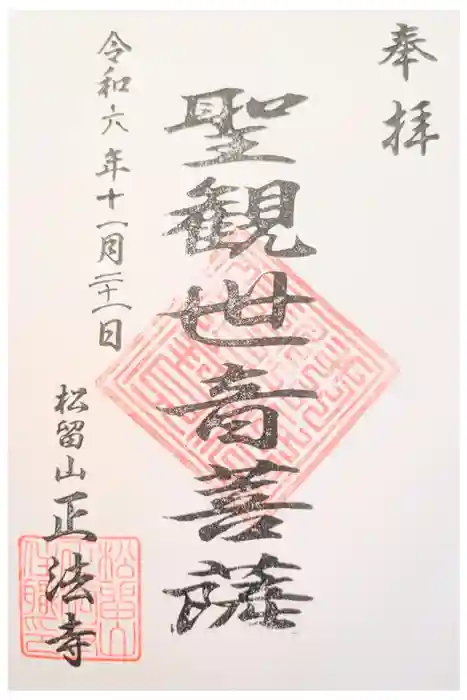 奉拝
聖観世音菩薩
令和六年十一月二十一日
松留山 正法寺